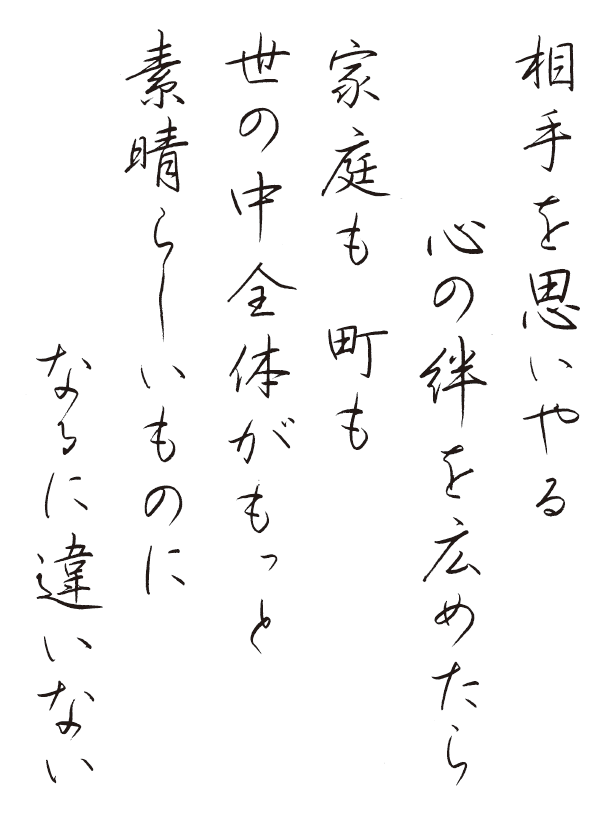 相手を思いやる
心の絆を広めたら
家庭も 町も
世の中全体がもっと
素晴らしいものに
なるに違いない